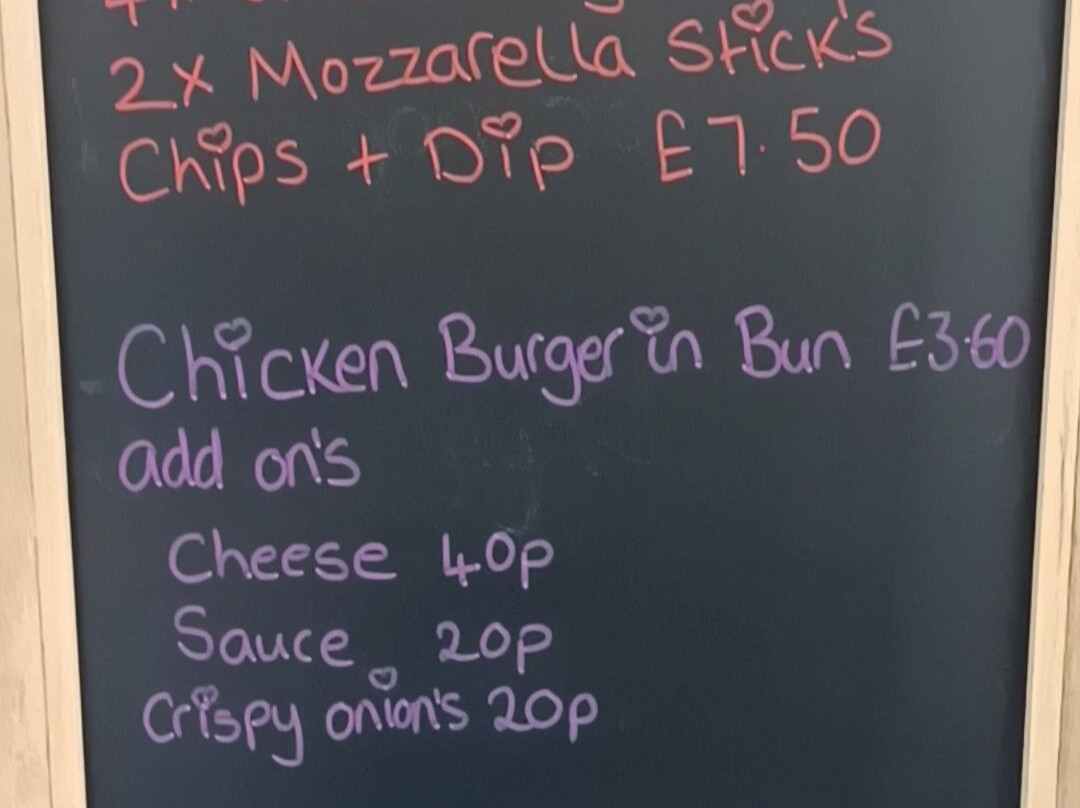 2x Mozzarella Stick's
Chips + Dip £7.50
Chicken Burger in Bun £3.60
add on's
Cheese 40p
Sauce 20p
Crispy onion's 20p